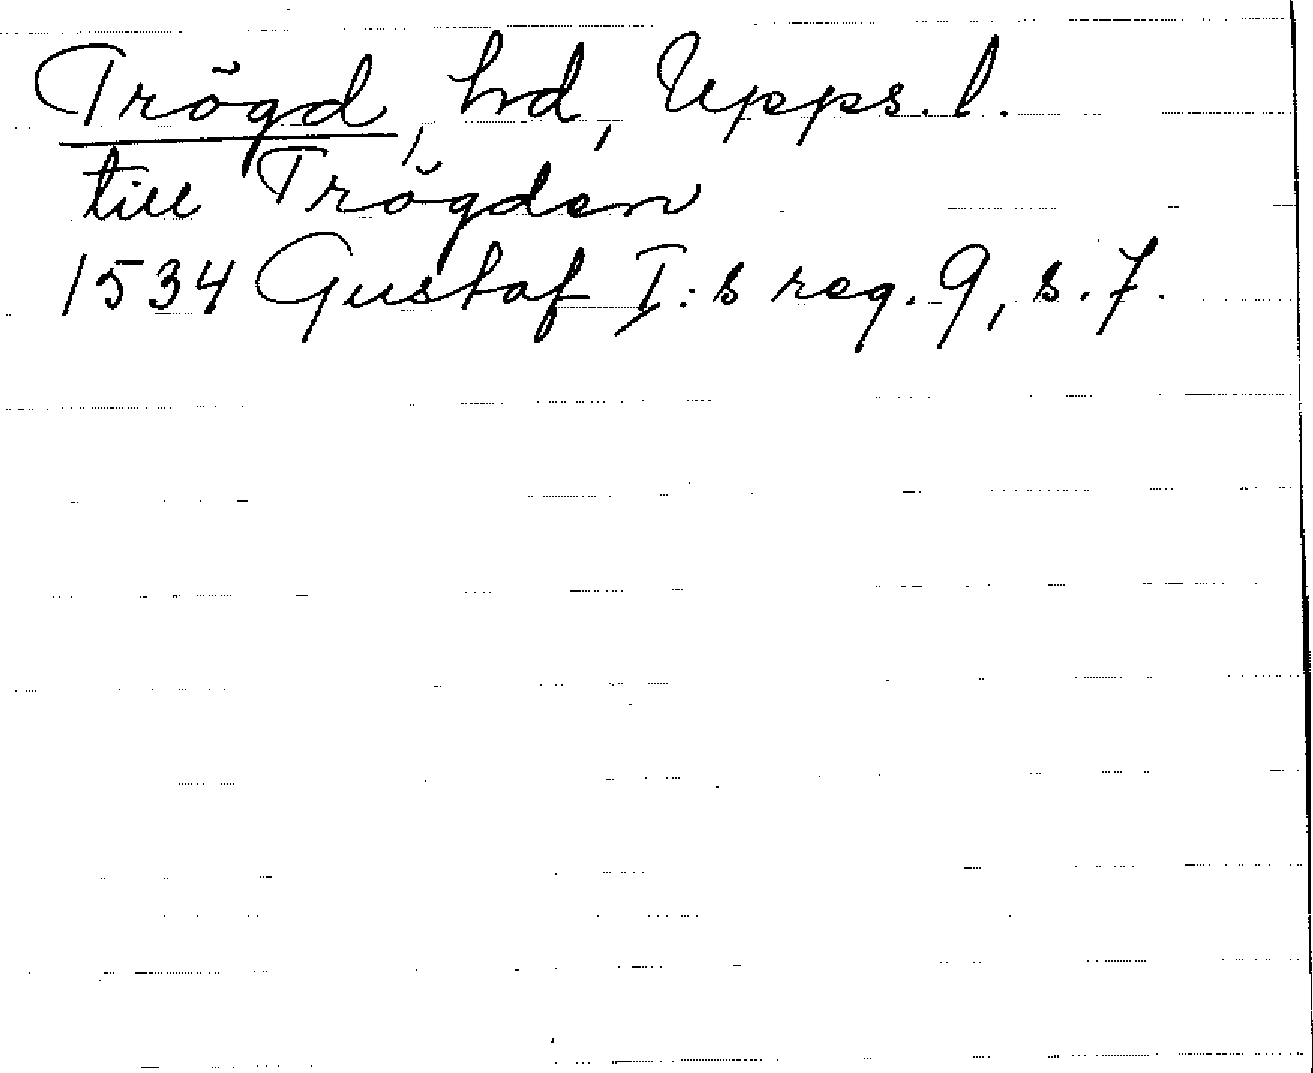 Trögd, hd, Upps. l.
till Trögden
1534 Gustaf I:s reg. 9, s. 7.